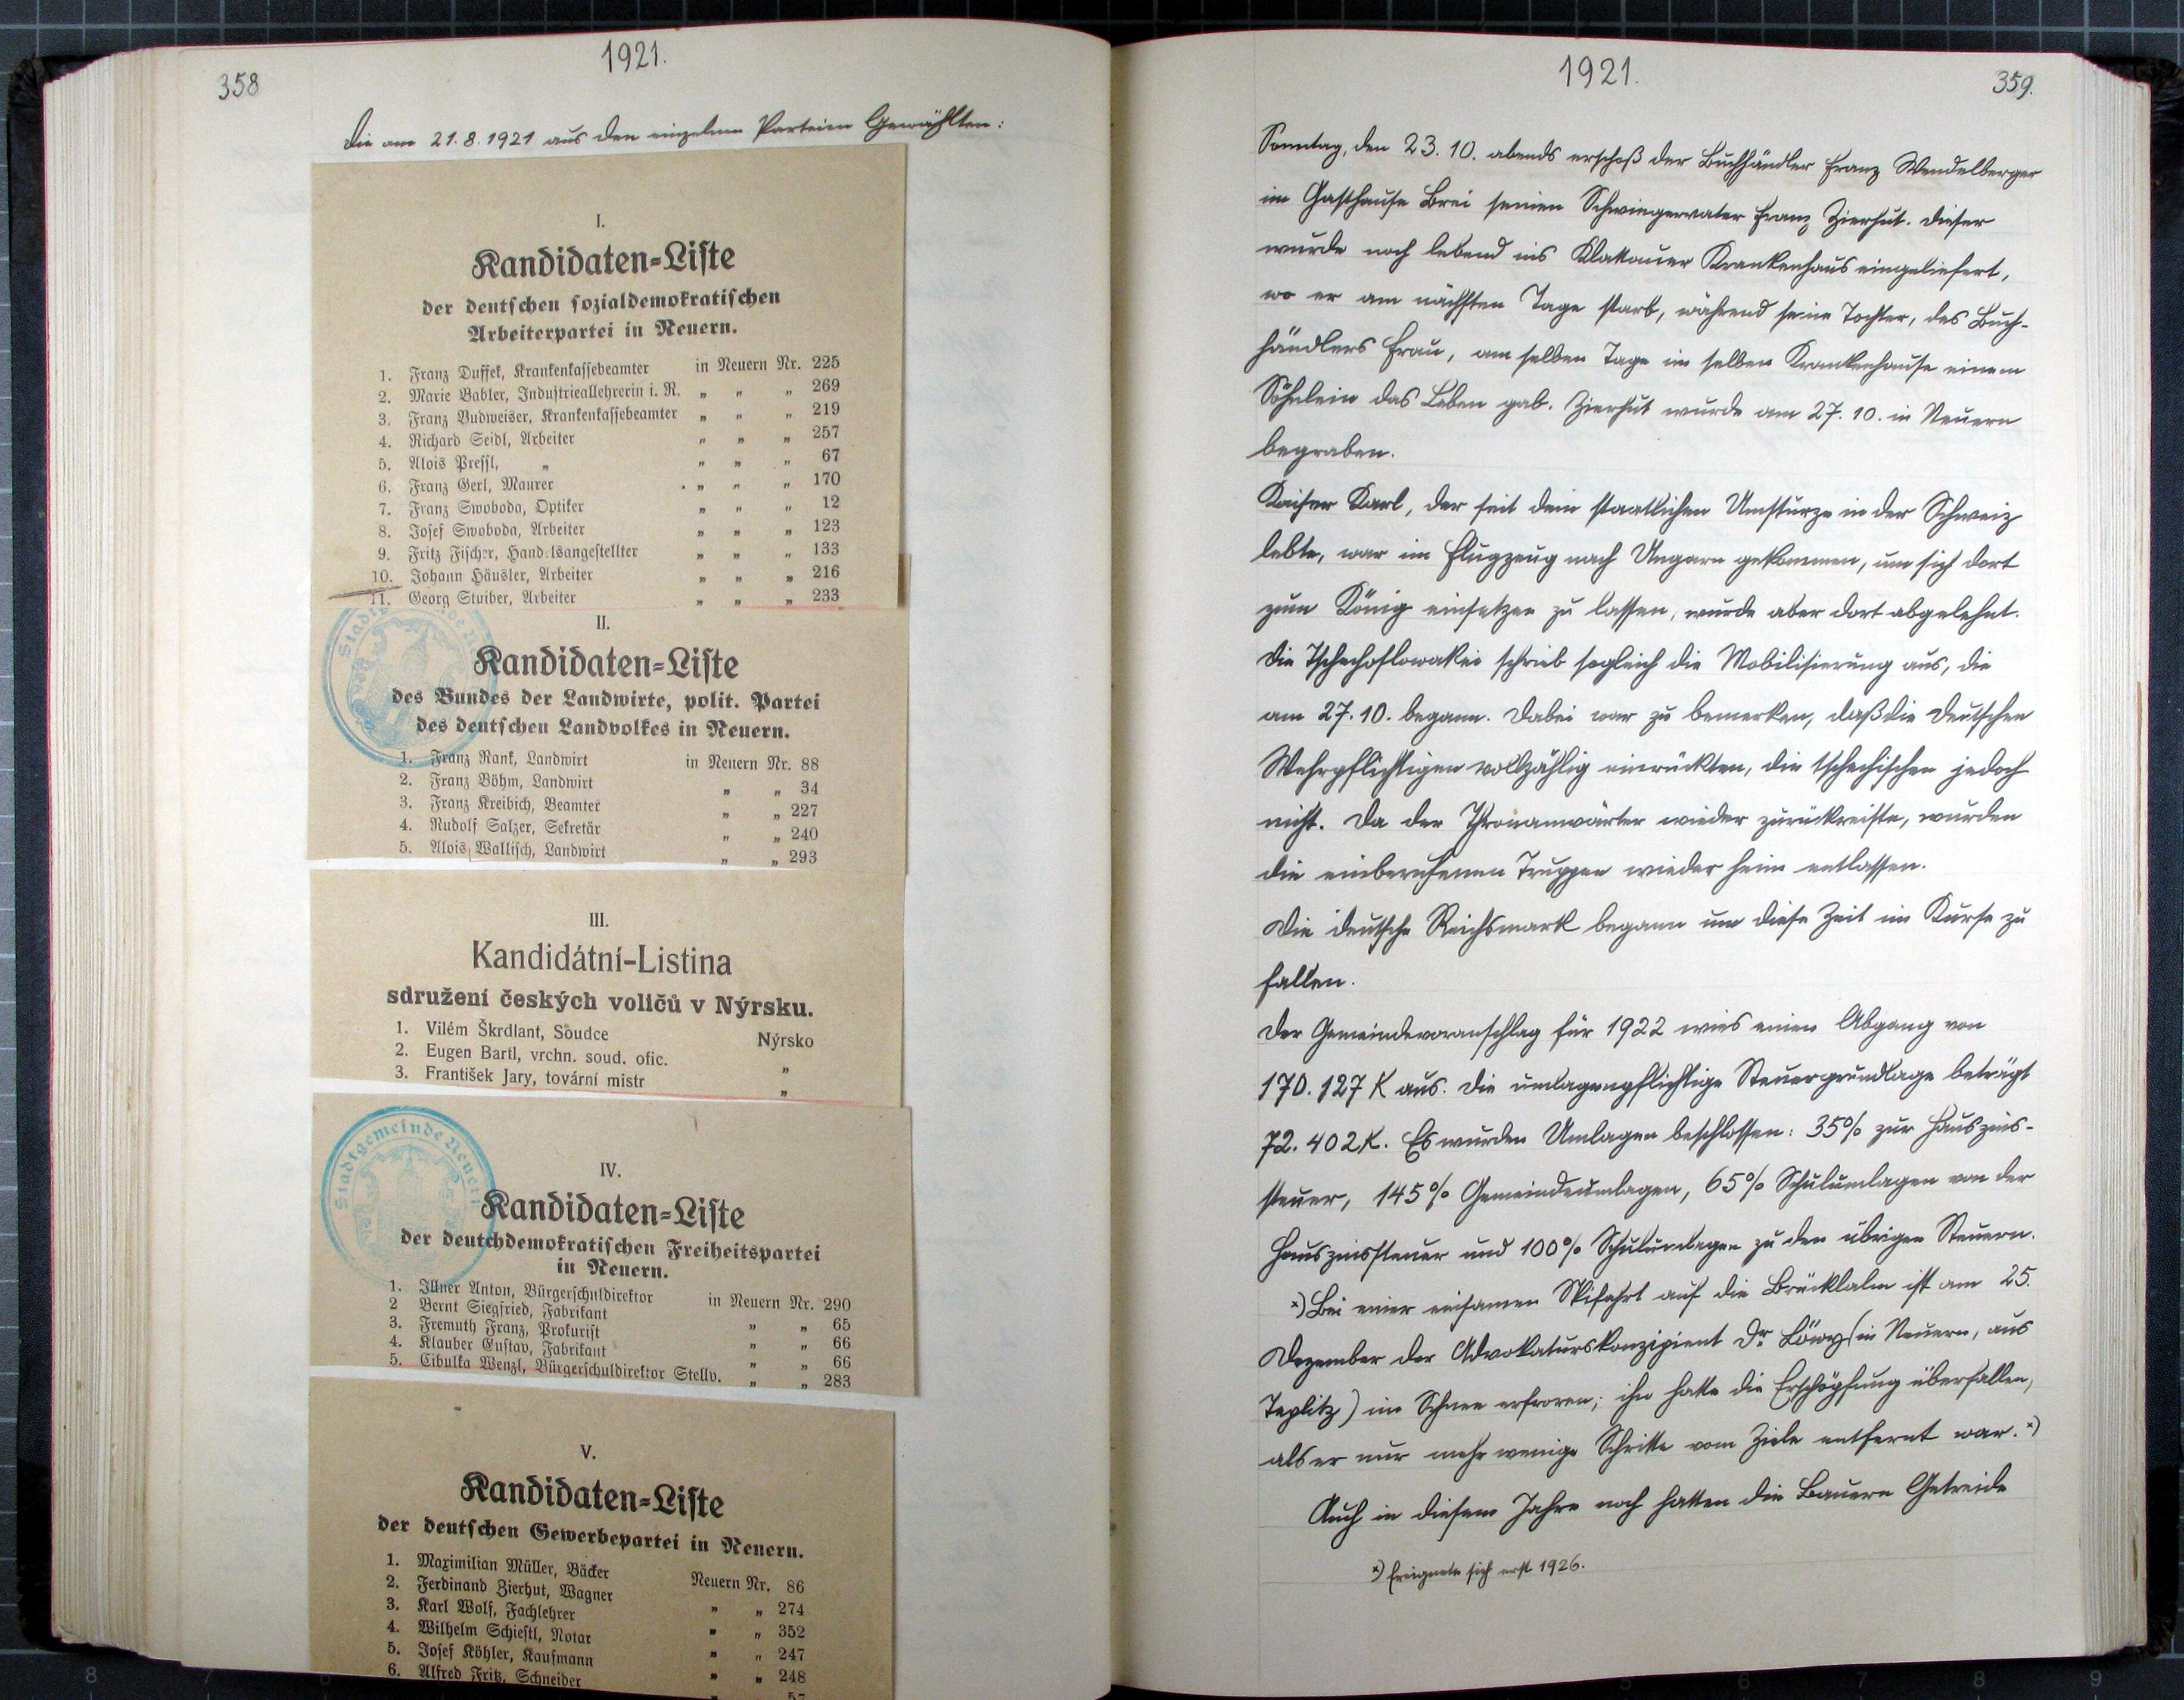 358
1921.
Die am 21.8.1921 aus den einzelnen Parteien Gewählten:
I.
Kandidaten-Liste
der deutschen sozialdemokratischen
Arbeiterpartei in Neuern.
1. Franz Duffek, Krankenkassebeamter in Neuern Nr. 225
2. Marie Babler, Industrieallehrerin i. R. „ „ „ 269
3. Franz Budweiser, Krankenkassebeamter „ „ „ 219
4. Richard Seidl, Arbeiter „ „ „ 257
5. Alois Pressl, „ „ „ „ 67
6. Franz Gerl, Maurer „ „ „ 170
7. Franz Swoboda, Optiker „ „ „ 12
8. Josef Swoboda, Arbeiter „ „ „ 123
9. Fritz Fischer, Handelsangestellter „ „ „ 133
10. Johann Häusler, Arbeiter „ „ „ 216
11. Georg Stuiber, Arbeiter „ „ „ 233
II.
Kandidaten-Liste
des Bundes der Landwirte, polit. Partei
des deutschen Landvolkes in Neuern.
1. Franz Rank, Landwirt in Neuern Nr. 88
2. Franz Böhm, Landwirt „ „ 34
3. Franz Kreibich, Beamter „ „ 227
4. Rudolf Salzer, Sekretär „ „ 240
5. Alois Wallisch, Landwirt „ „ 293
III.
Kandidátní-Listina
sdružení českých voličů v Nýrsku.
1. Vilém Škrdlant, Soudce Nýrsko
2. Eugen Bartl, vrchn. soud. ofic. „
3. František Jary, tovární mistr „
Stadtgemeinde Neuern
IV.
Kandidaten-Liste
der deutchdemokratischen Freiheitspartei
in Neuern.
1. Illner Anton, Bürgerschuldirektor in Neuern Nr. 290
2 Bernt Siegfried, Fabrikant „ „ 65
3. Fremuth Franz, Prokurist „ „ 66
4. Klauber Gustav, Fabrikant „ „ 66
5. Cibulka Wenzl, Bürgerschuldirektor Stellv. „ „ 283
V.
Kandidaten-Liste
der deutschen Gewerbepartei in Neuern.
1. Maximilian Müller, Bäcker Neuern Nr. 86
2. Ferdinand Zierhut, Wagner „ „ 274
3. Karl Wolf, Fachlehrer „ „ 352
4. Wilhelm Schiestl, Notar „ „ 247
5. Josef Köhler, Kaufmann „ „ 248
6. Alfred Fritz, Schneider „ 57
1921.
359.
Sonntag, den 23.10. abends erschoß der Buchhändler Franz Wendelberger
im Gasthause Brei seinen Schwiegervater Franz Zierhut. Dieser
wurde noch lebend ins Klattauer Krankenhaus eingeliefert,
wo er am nächsten Tage starb, während seine Tochter, des Buch-
händlers Frau, am selben Tage im selben Krankenhause einem
Söhnlein das Leben gab. Zierhut wurde am 27.10. in Neuern
begraben.
Kaiser Karl, der seit dem staatlichen Umsturze in der Schweiz
lebte, war im Flugzeug nach Ungarn gekommen, um sich dort
zum König einsetzen zu lassen, wurde aber dort abgelehnt.
Die Tschechoslowakei schrieb sogleich die Mobilisierung aus, die
am 27.10. begann. Dabei war zu bemerken, daß die deutschen
Wehrpflichtigen vollzählig einrückten, die tschechischen jedoch
nicht. Da der Thronanwärter wieder zurückreiste, wurden
die einberufenen Truppen wieder heim entlassen.
Die deutsche Reichsmark begann um diese Zeit im Kurse zu
fallen.
Der Gemeindevoranschlag für 1922 wies einen Abgang von
170.127 K aus. Die umlagenpflichtige Steuergrundlage beträgt
72.402 K. Es wurden Umlagen beschlossen: 35% zur Hauszins-
steuer, 145% Gemeindeumlagen, 65% Schulumlagen von der
Hauszinssteuer und 100% Schulumlagen zu den übrigen Steuern.
x) Bei einer einsamen Skifahrt auf die Brücklalm ist am 25.
Dezember der Advokaturskonzipient Dr Löwy (in Neuern, aus
Teplitz) im Schnee erfroren; ihn hatte die Erschöpfung überfallen,
als er nur mehr wenige Schritte vom Ziele entfernt war. x)
Auch in diesem Jahre noch hatten die Bauern Getreide
x) Ereignete sich erst 1926.